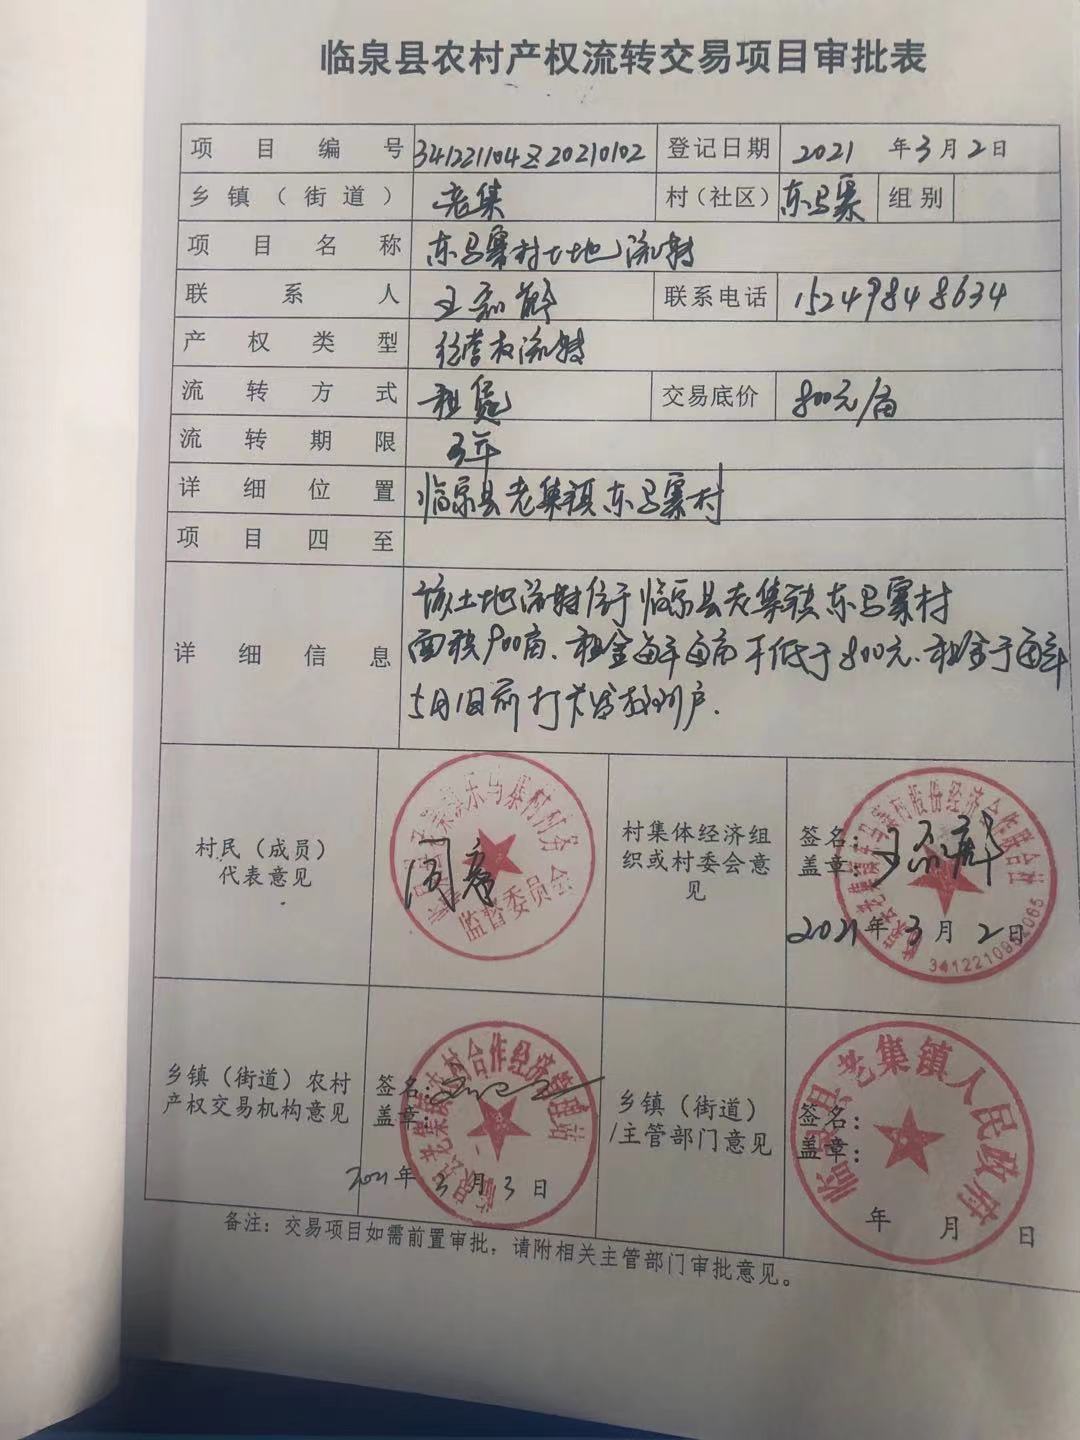 临泉县农村产权流转交易项目审批表
项目编号 341221104Z20210102 登记日期 2021年3月2日
乡镇（街道） 老集 村（社区） 东马寨 组别
项目名称 东马寨村土地流转
联系人 王 联系电话 15249848634
产权类型 经营权流转
流转方式 租赁 交易底价 800元/亩
流转期限 3年
详细位置 临泉县老集镇东马寨村
项目四至
详细信息
该土地流转位于临泉县老集镇东马寨村
面积900亩、租金每年每亩不低于800元、租金于每年
5月1日前打卡发放到户.
村民（成员）
代表意见
监督委员会
村集体经济组
织或村委会意
见
签名：
盖章：
2021年3月2日
乡镇（街道）农村
产权交易机构意见
签名：
盖章：
2021年3月3日
乡镇（街道）
/主管部门意见
临泉县老集镇人民政府
签名：
盖章：
年 月 日
备注：交易项目如需前置审批，请附相关主管部门审批意见。